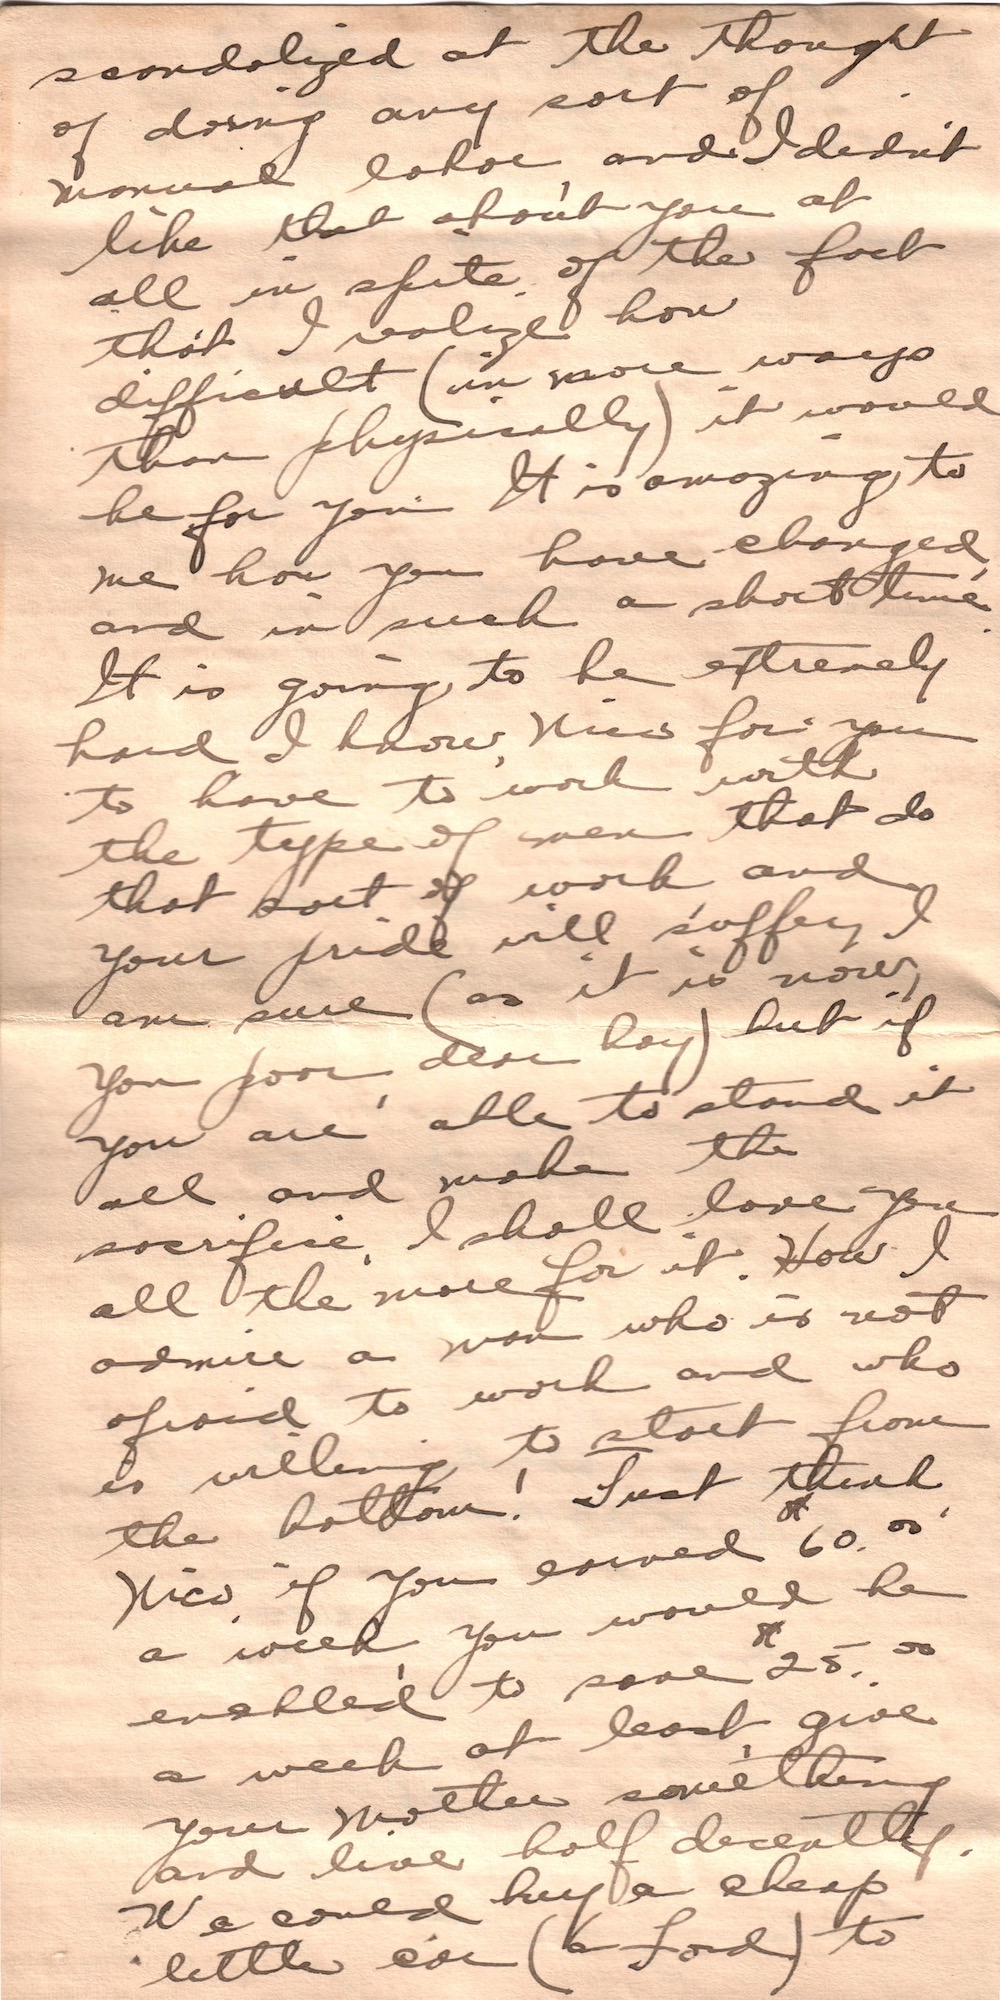 scandalized at the thought
of doing any sort of
manual labor and I didn't
like that about you at
all in spite of the fact
that I realize how
difficult (in more ways
than physically) it would
be for you. It is amazing to
me how you have changed
and in such a short time.
It is going to be extremely
hard I know, Nico for you
to have to work with
the type of men that do
that sort of work and
your pride will suffer, I
am sure (as it is now,
you poor dear boy) but if
you are able to stand it
all and make the
sacrifice, I shall love you
all the more for it. How I
admire a man who is not
afraid to work and who
is willing to start from
the bottom! Just think
Nico, if you earned $60.00
a week, you would be
enabled to save $25.00
a week at least, give
your Mother something
and live half decently.
We could buy a cheap
little car (a Ford) to